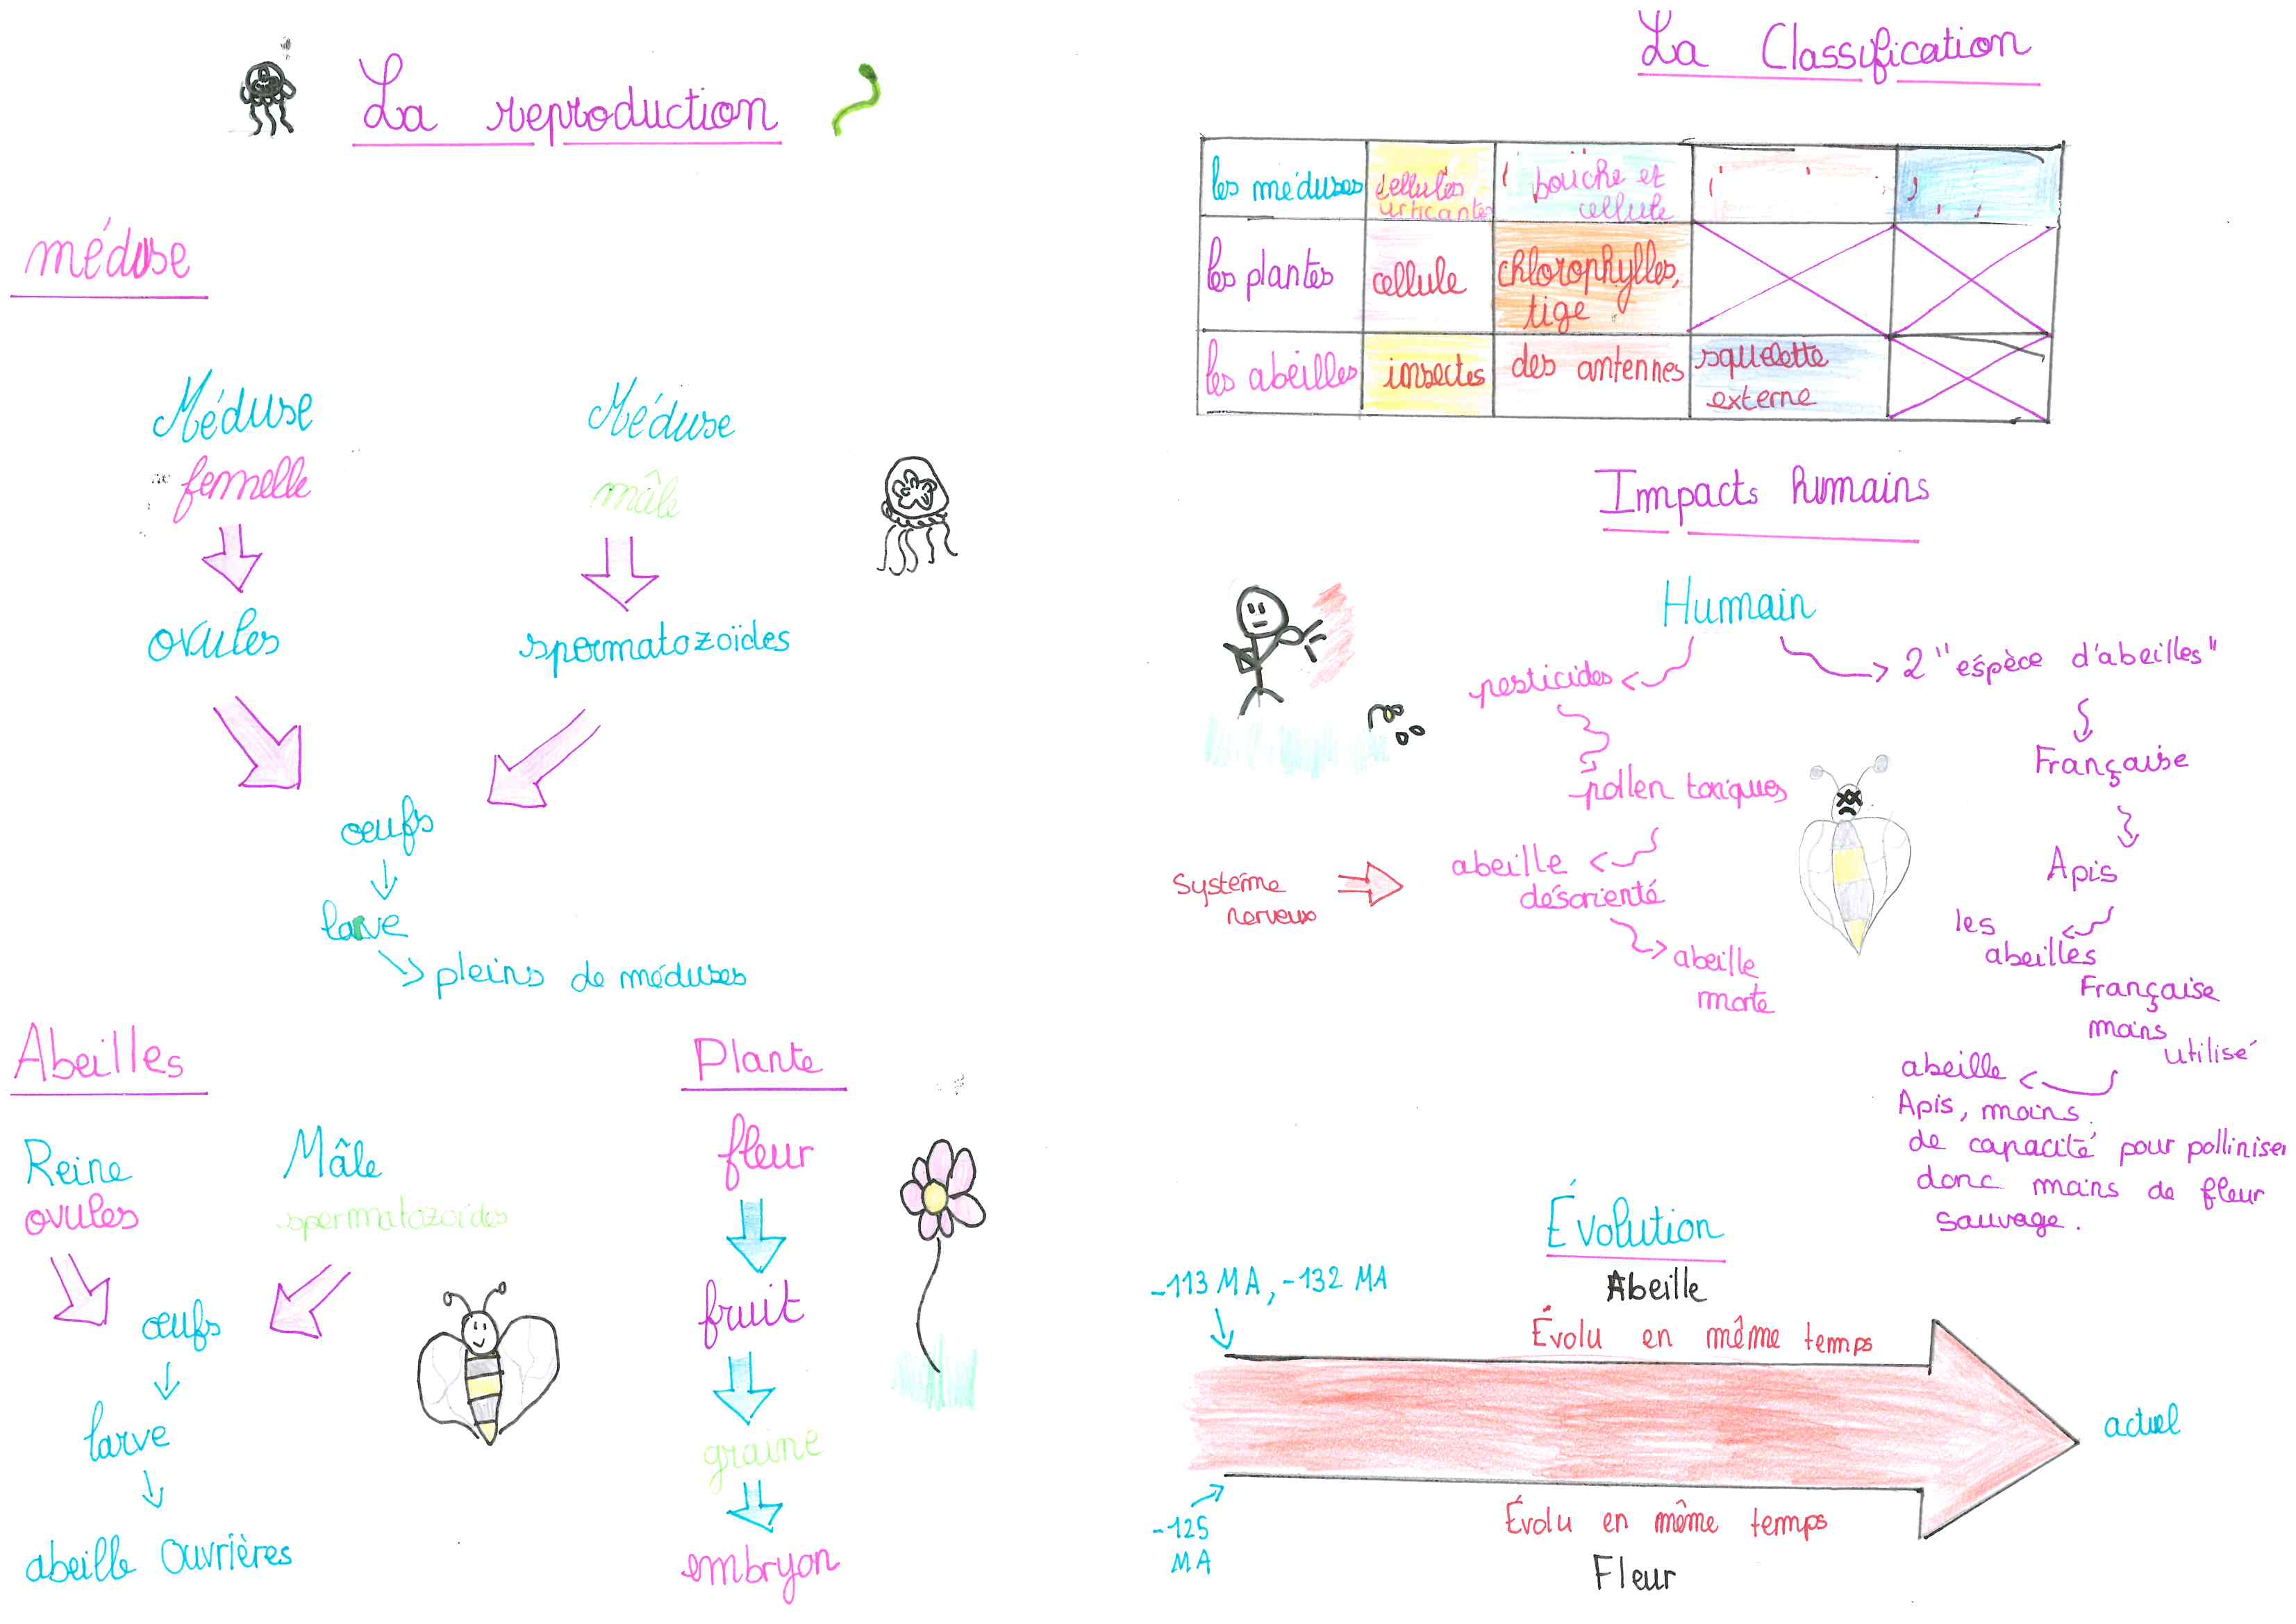 La reproduction
méduse
Méduse
femelle
Méduse
mâle
ovules
spermatozoïdes
œufs
larve
pleins de méduses
Abeilles
Reine
ovules
Mâle
spermatozoïdes
œufs
larve
abeille ouvrières
Plante
fleur
fruit
graine
embryon
La Classification
les méduses
cellules
urticantes
bouche et
cellule
les plantes
cellule
chlorophylles,
tige
les abeilles
insectes
des antennes
squelette
externe
Impacts humains
Humain
pesticides
2 "espèce d'abeilles"
pollen toxiques
Française
abeille
désorienté
Système
nerveux
Apis
abeille
morte
les
abeilles
Française
moins
utilisé
abeille
Apis, moins
de capacité pour polliniser
donc moins de fleur
sauvage.
Évolution
-113 MA, -132 MA
Abeille
Évolu en même temps
actuel
-125
MA
Évolu en même temps
Fleur